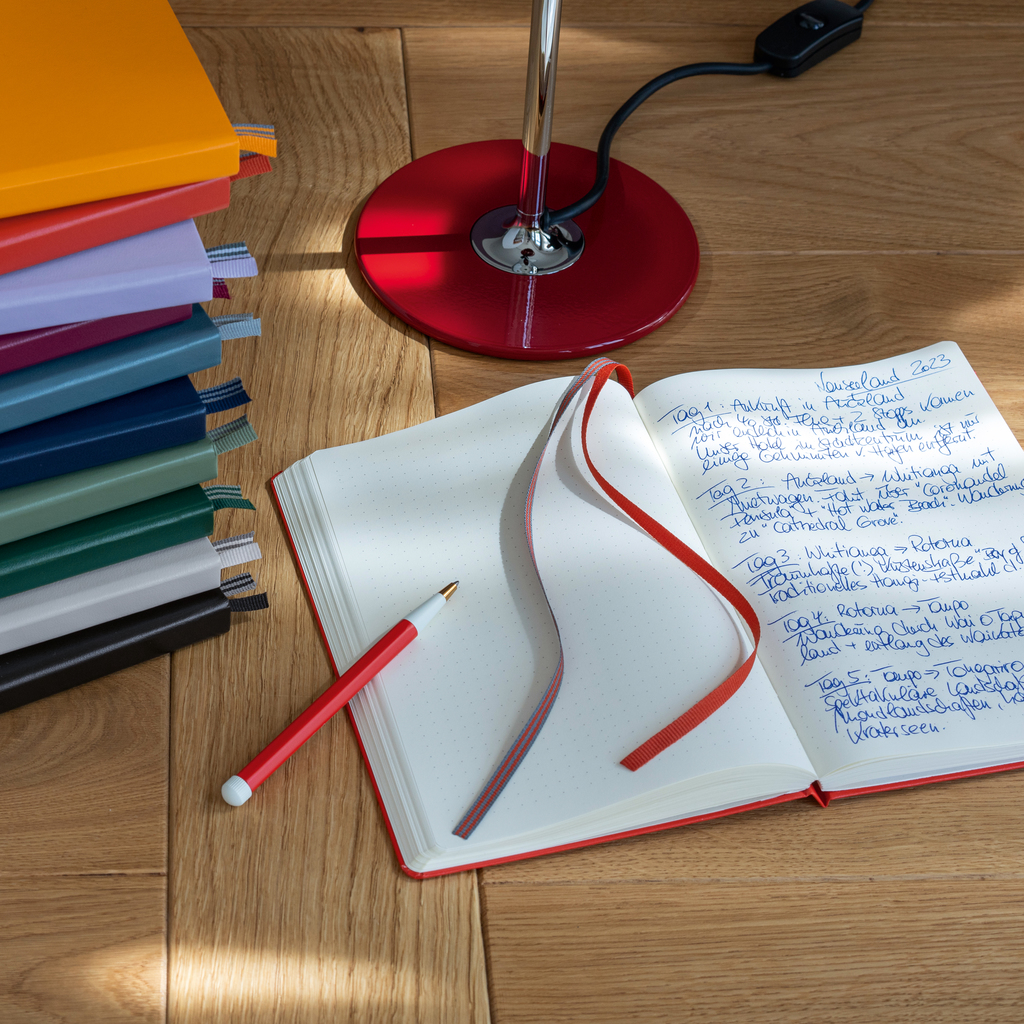 Neuseeland 2023
Tag 1: Ankunft in Auckland
nach 40 Std. Reise + 2 Stops können
wir endlich in Auckland an.
Unser Hotel im Stadtzentrum ist nur
einige Gehminuten v. Hafen entfernt.
Tag 2: Auckland → Whitianga mit
Mietwagen Fahrt über Coromandel
Peninsula + "Hot Water Beach" - Wanderung
zu "Cathedral Grove".
Tag 3: Whitianga → Rotorua
Traumhafte (!) Küstenstraße "Bay of
traditionelles Hangi
Tag 4: Rotorua → Taupo
Wanderung durch Wai O Tapu
land + entlang des Waikato
Tag 5: Taupo → Tongariro
Spektakuläre Landschaft
Mondlandschaften,
Kraterseen.